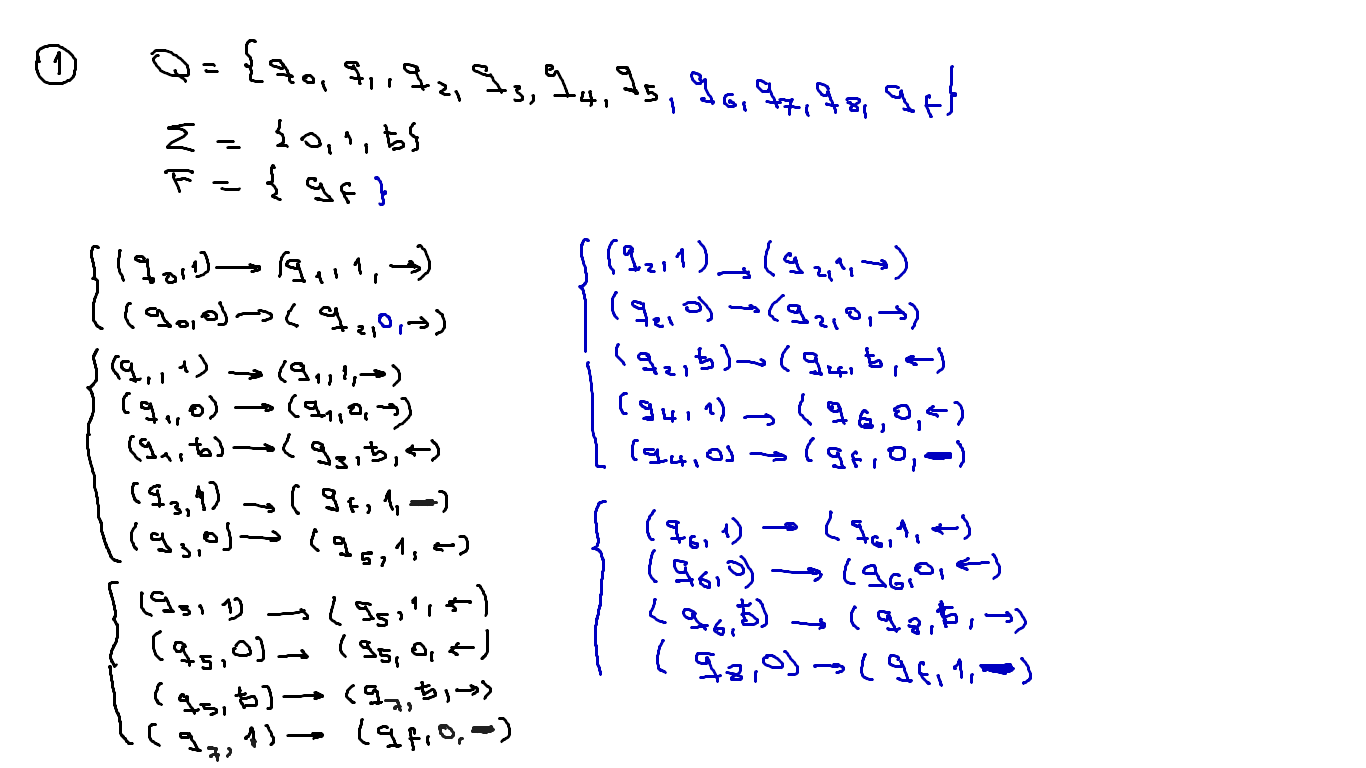 ① Q = {q₀, q₁, q₂, q₃, q₄, q₅, q₆, q₇, q₈, q_f}
Σ = {0, 1, ƀ}
F = {q_f}
(q₀, 1) → (q₁, 1, →)
(q₀, 0) → (q₂, 0, →)
(q₁, 1) → (q₁, 1, →)
(q₁, 0) → (q₁, 0, →)
(q₁, ƀ) → (q₃, ƀ, ←)
(q₃, 1) → (q_f, 1, −)
(q₃, 0) → (q₅, 1, ←)
(q₅, 1) → (q₅, 1, ←)
(q₅, 0) → (q₅, 0, ←)
(q₅, ƀ) → (q₇, ƀ, →)
(q₇, 1) → (q_f, 0, −)
(q₂, 1) → (q₂, 1, →)
(q₂, 0) → (q₂, 0, →)
(q₂, ƀ) → (q₄, ƀ, ←)
(q₄, 1) → (q₆, 0, ←)
(q₄, 0) → (q_f, 0, −)
(q₆, 1) → (q₆, 1, ←)
(q₆, 0) → (q₆, 0, ←)
(q₆, ƀ) → (q₈, ƀ, →)
(q₈, 0) → (q_f, 1, −)